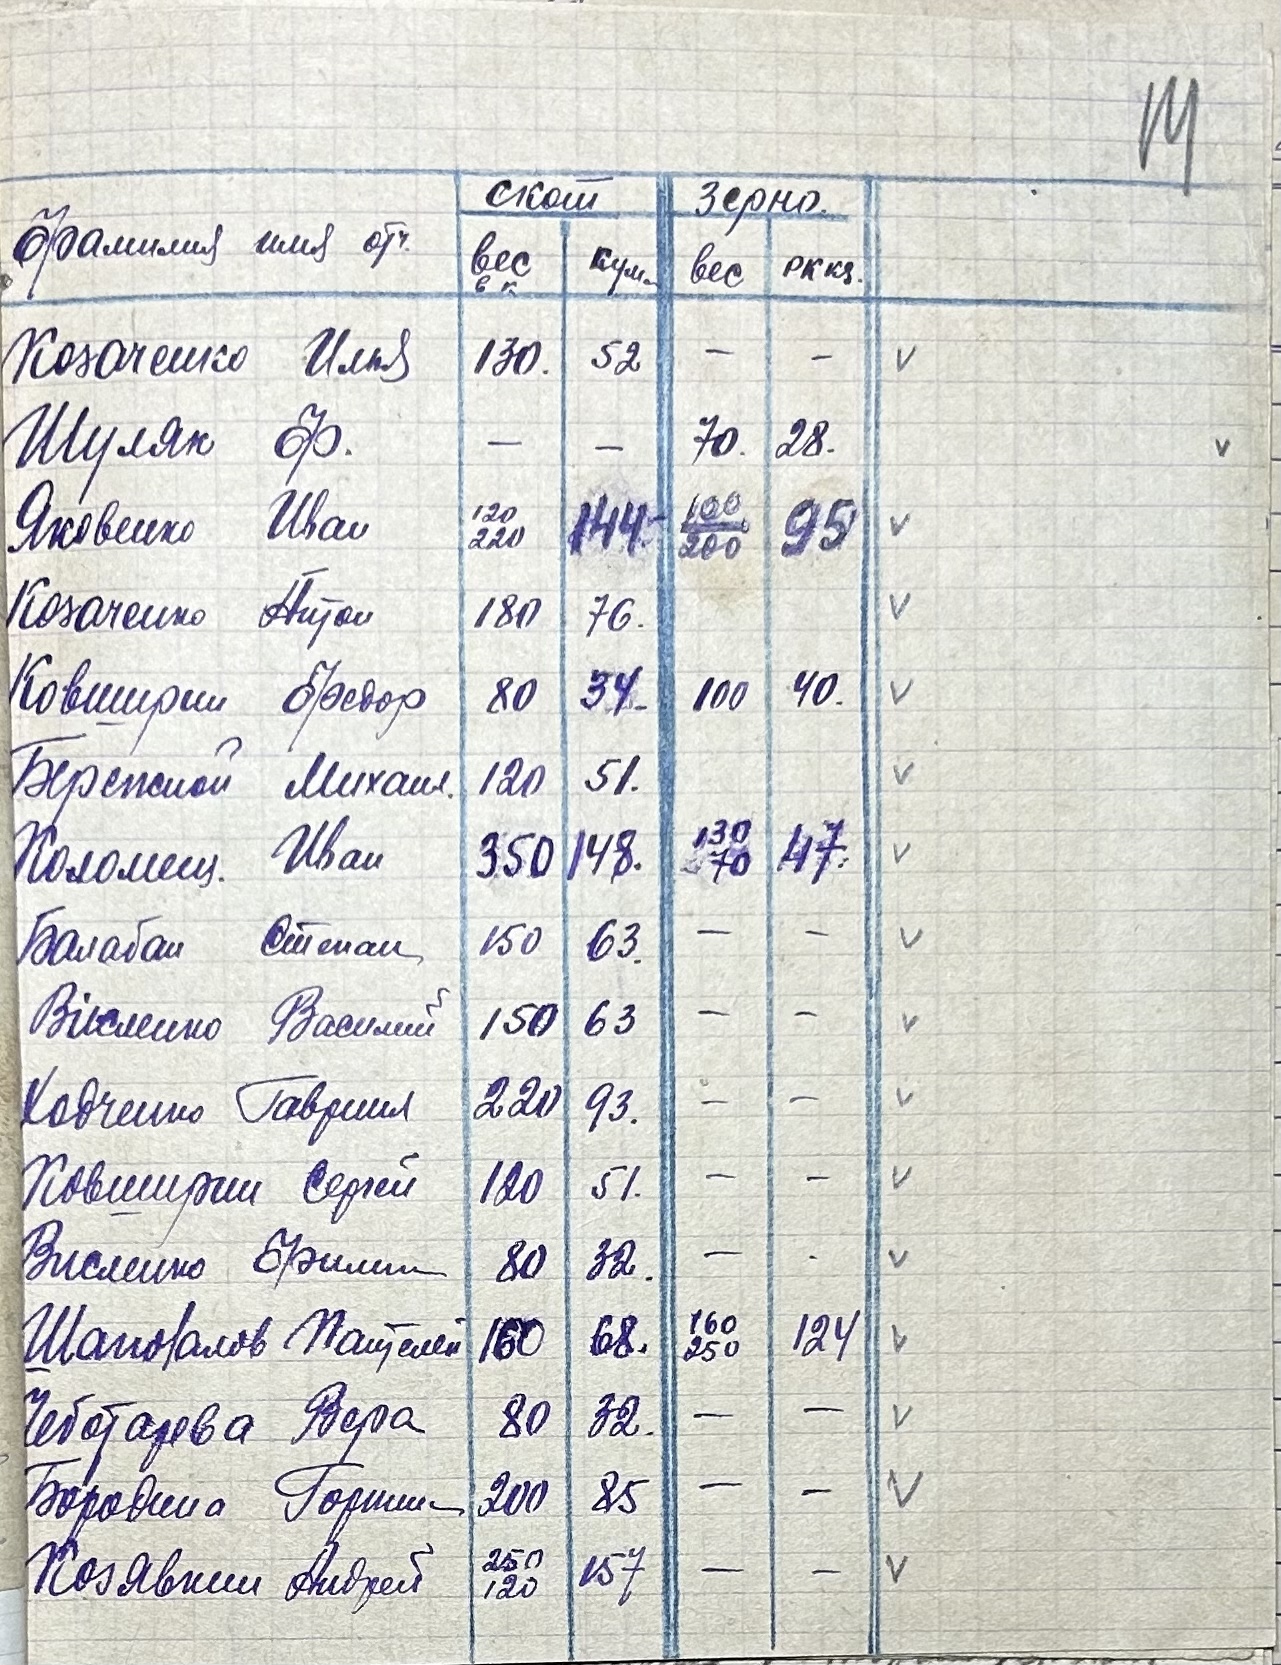 М
скот зерно.
Фамилия имя отч. вес кум. вес РККЗ.
в к
Козаченко Илья 130. 52 — — v
Шуляк Фр. — — 70. 28. v
Яковенко Иван 120 220 144. 100 200 95 v
Козаченко Антон 180 76. v
Ковширин Федор 80 34. 100 40. v
Бережной Михаил. 120 51. v
Коломеец. Иван 350 148. 130 70 47. v
Балабан Степан 150 63. — — v
Висленко Василий 150 63 — — v
Ходченко Гавриил 220 93. — — v
Ковширин Сергей 120 51. — — v
Висленко Филип 80 32. — - v
Шаповалов Пантелей 160 68. 160 250 124 v
Чеботарева Вера 80 32. — — v
Бородина 200 85 — — v
Козявкин Андрей 250 120 157 — — v